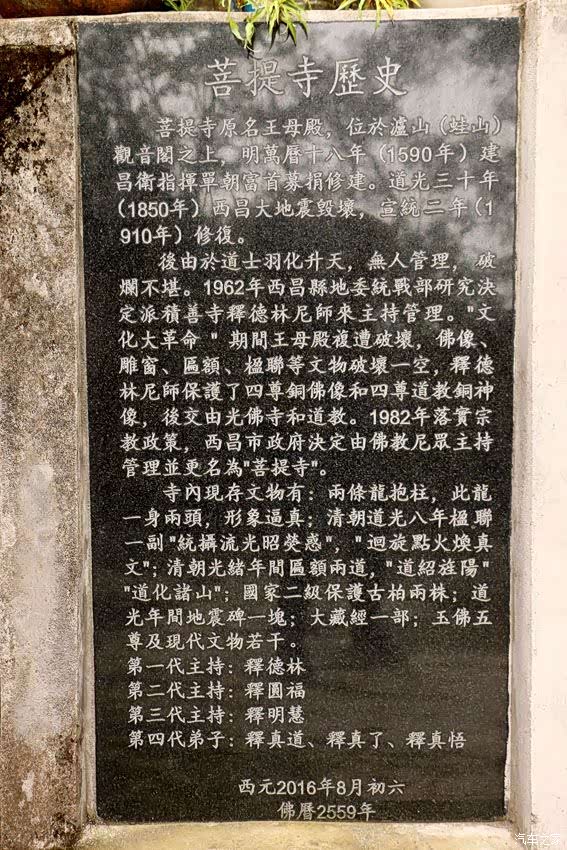 菩提寺歷史
菩提寺原名王母殿，位於瀘山（蛙山）
觀音閣之上，明萬曆十八年（1590年）建
昌衛指揮單朝富首募捐修建。道光三十年
（1850年）西昌大地震毀壞，宣統二年（1
910年）修復。
後由於道士羽化升天，無人管理，破
爛不堪。1962年西昌縣地委統戰部研究決
定派積善寺釋德林尼師來主持管理。"文
化大革命 " 期間王母殿複遭破壞，佛像、
雕窗、區額、楹聯等文物破壞一空，釋德
林尼師保護了四尊銅佛像和四尊道教銅神
像，後交由光佛寺和道教。1982年落實宗
教政策，西昌市政府決定由佛教尼眾主持
管理並更名為"菩提寺"。
寺內現存文物有：兩條龍抱柱，此龍
一身兩頭，形象逼真；清朝道光八年楹聯
一副"統攝流光昭熒惑"，" 迴旋點火煥真
文"；清朝光緒年間區額兩道，"道紹旌陽"
"道化諸山"；國家二級保護古柏兩株；道
光年間地震碑一塊；大藏經一部；玉佛五
尊及現代文物若干。
第一代主持：釋德林
第二代主持：釋圓福
第三代主持：釋明慧
第四代弟子：釋真道、釋真了、釋真悟
西元2016年8月初六
佛曆2559年
汽车之家